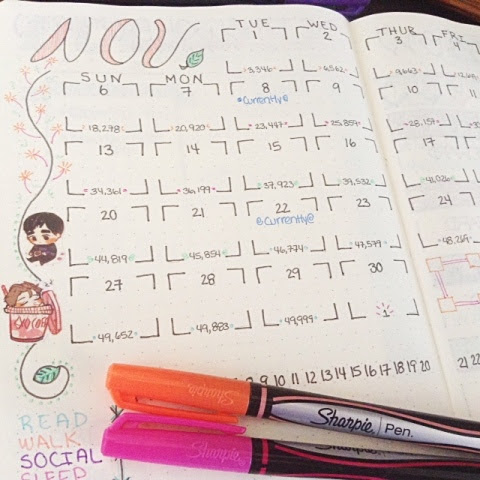 NOV
TUE WED THUR FRI
1 2 3 4
3,346 6,562 9,663
SUN MON
6 7 8 9 10 11
*Currently@
18,278 20,920 23,447 25,857 28,157
13 14 15 16 17
34,361 36,199 37,923 39,532 41,026
20 21 22 23 24
@Currently@
44,819 45,854 46,774 47,579 48,269
27 28 29 30
49,652 49,883 49,999 1
9 10 11 12 13 14 15 16 17 18 19 20 21 22
READ
WALK
SOCIAL
SLEEP
Sharpie. Pen.
Sharpie